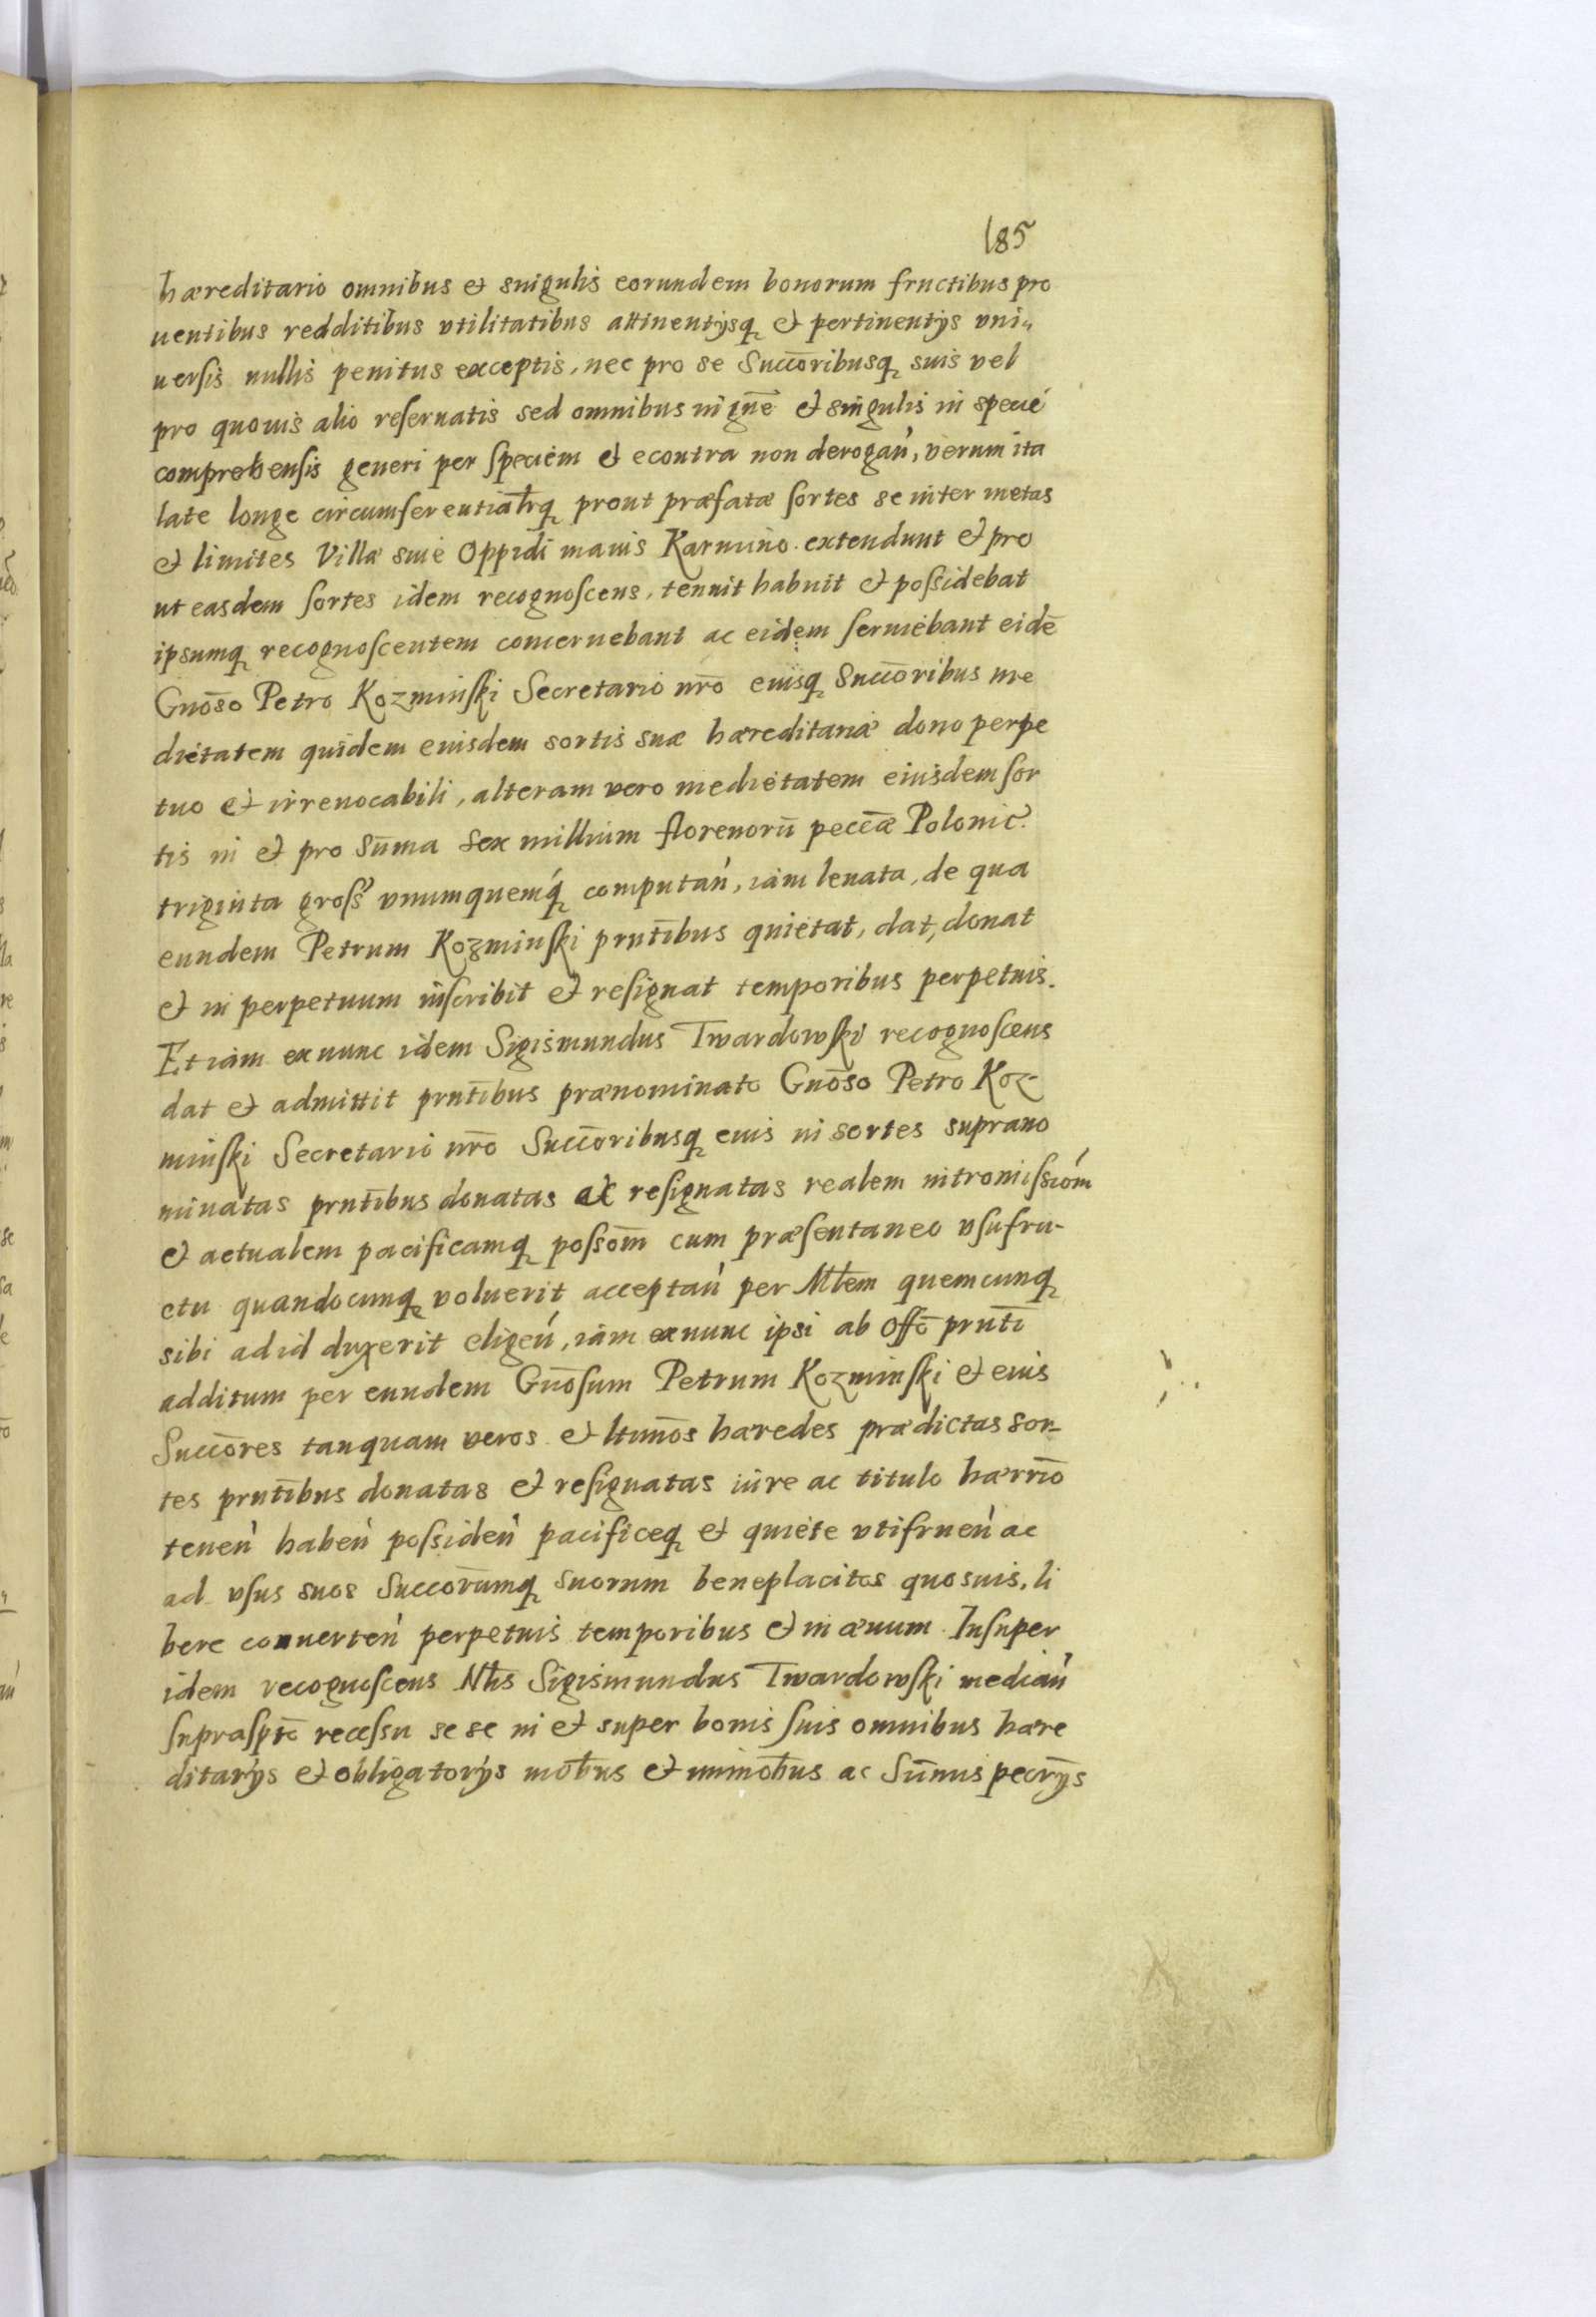 185
hæreditario omnibus et singulis eorundem bonorum fructibus pro
uentibus redditibus vtilitatibus attinentijsq et pertinentijs vni„
uersis nullis penitus exceptis, nec pro se Succōribusq suis vel
pro quouis alio reseruatis sed omnibus in gnē et singulis in specie
comprehensis generi per speciem et econtra non derogań, verum ita
late longe circumferentiatrq prout præfatæ sortes se inter metas
et limites Villæ siue Oppidi mauis Karmino extendunt et pro
ut easdem sortes idem recognoscens, tenuit habuit et possidebat
ipsumq recognoscentem concernebant ac eidem seruiebant eidē
Gnōso Petro Kozminski Secretario nrō eiusq Succōribus me
dietatem quidem eiusdem sortis suæ hæreditariæ dono perpe
tuo et irreuocabili, alteram vero medietatem eiusdem sor
tis in et pro Sūma sex millium florenorū peccæ Polonic.
triginta gross vnumquemq computań, iam leuata, de qua
eundem Petrum Kozminski prntībus quietat, dat, donat
et in perpetuum inscribit et resignat temporibus perpetuis.
Etiam exnunc idem Sigismundus Twardowski recognoscens
dat et admittit prntībus prænominato Gnōso Petro Koz-
minski Secretario nrō Succōribusq eius in sortes suprano
minatas prntībus donatas ac resignatas realem intromissiom
et actualem pacificamq possom̄ cum præsentaneo vsufru-
ctu quandocunq voluerit acceptań per Mtem quemcunq
sibi ad id duxerit eligeń, iam exnunc ipsi ab Offō prntī
additum per eundem Gnōsum Petrum Kozminski et eius
Succōres tanquam veros et ltimōs hæredes prædictas sor-
tes prntībus donatas et resignatas iure ac titulo hærriō
teneń habeń possideń pacificeq et quiete vtifrueń ac
ad vsus suos Succorūmq suorum beneplacitos quosuis, li
bere conuerteń perpetuis temporibus et in æuum Insuper
idem recognoscens Nlis Sigismundus Twardowski mediań
suprasptō recessu se se in et super bonis suis omnibus hære
ditarijs et obligatorijs mobūs et immobūs ac Sūmis pecrijs